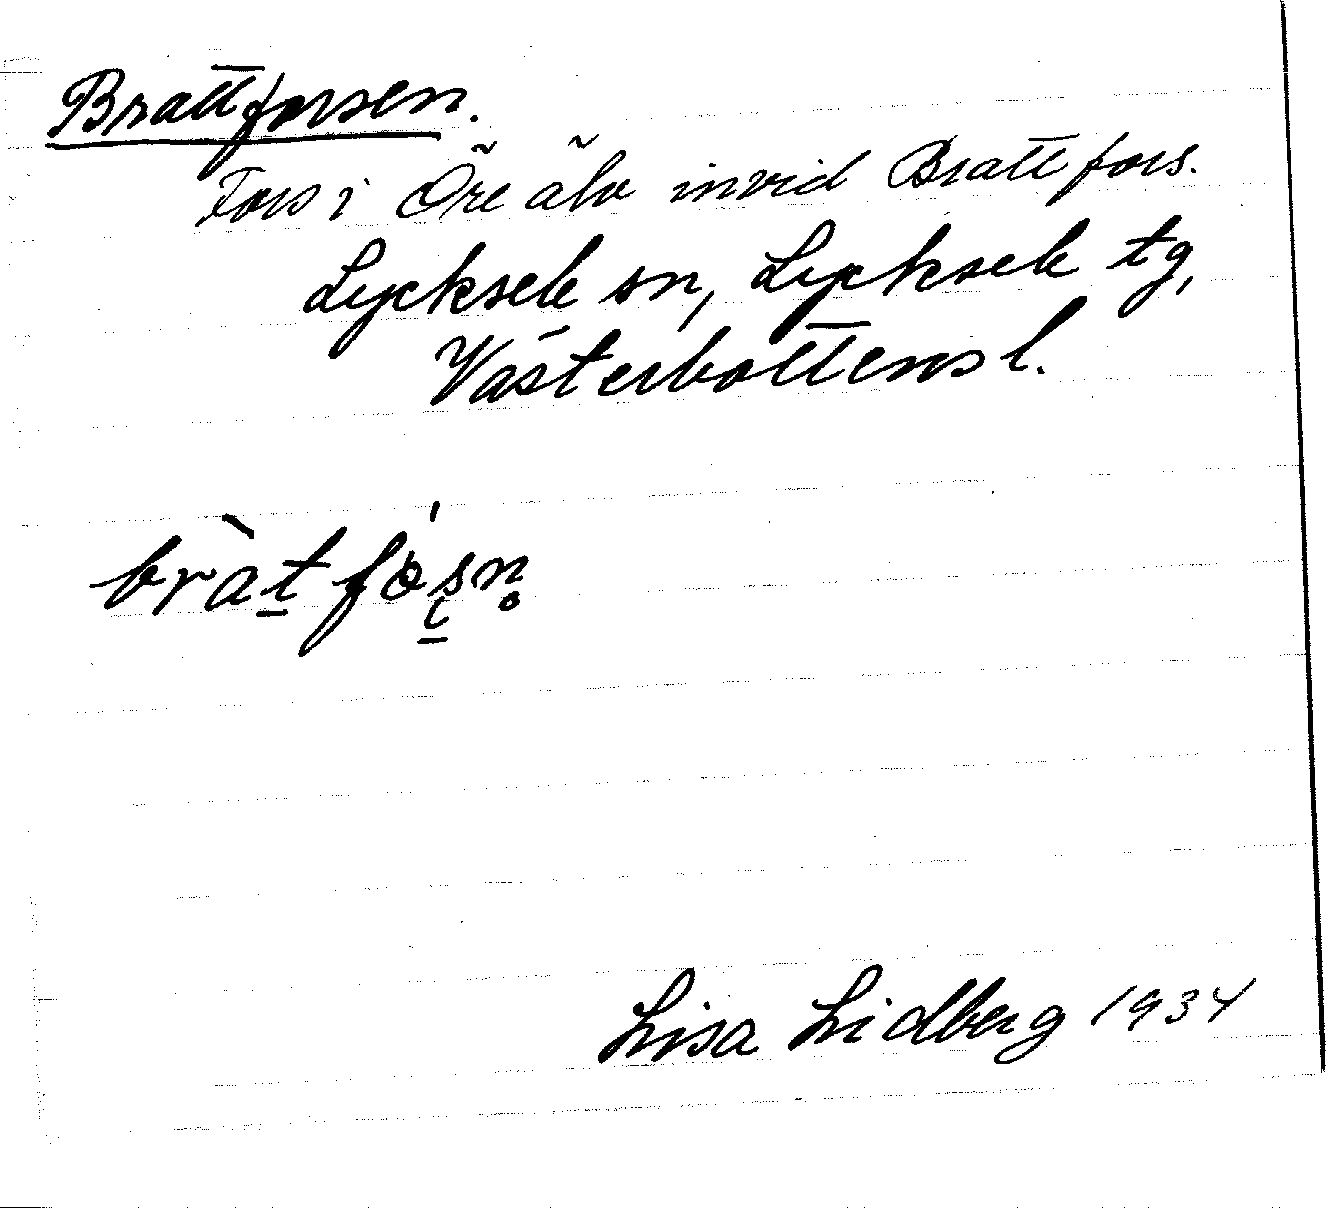 Brattforsen.
Fors i Öre älv invid Brattfors.
Lycksele sn, Lycksele tg,
Västerbottens l.
bràt̲fó̀ṣ̲n̥
Lisa Lidberg 1934